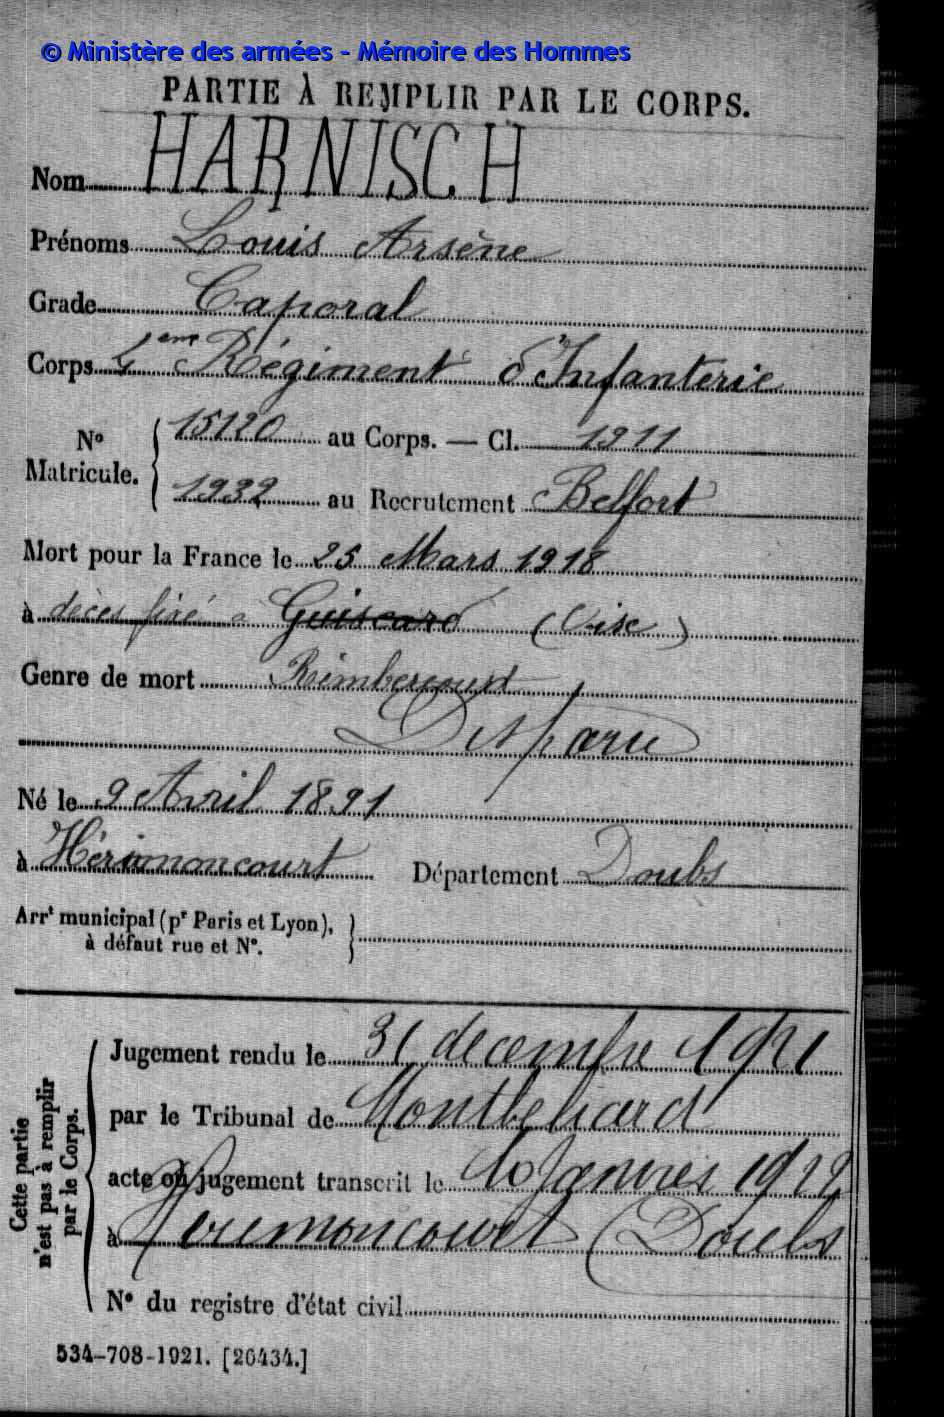 © Ministère des armées - Mémoire des Hommes
PARTIE À REMPLIR PAR LE CORPS.
Nom HARNISCH
Prénoms Louis Arsène
Grade Caporal
Corps 4eme Régiment d'Infanterie
No Matricule. 15120 au Corps. — Cl. 1911
1932 au Recrutement Belfort
Mort pour la France le 25 Mars 1918
à décès fixé à Guiscard (Oise)
Genre de mort Rimbercourt
Disparu
Né le 9 Avril 1891
à Hérimoncourt Département Doubs
Arrt municipal (pr Paris et Lyon),
à défaut rue et N°.
Cette partie
n'est pas à remplir
par le Corps.
Jugement rendu le 31 decembre 1921
par le Tribunal de Montbeliard
acte ou jugement transcrit le 10 Janvier 1922
à Herimoncourt (Doubs
N° du registre d'état civil
534-708-1921. [26434.]